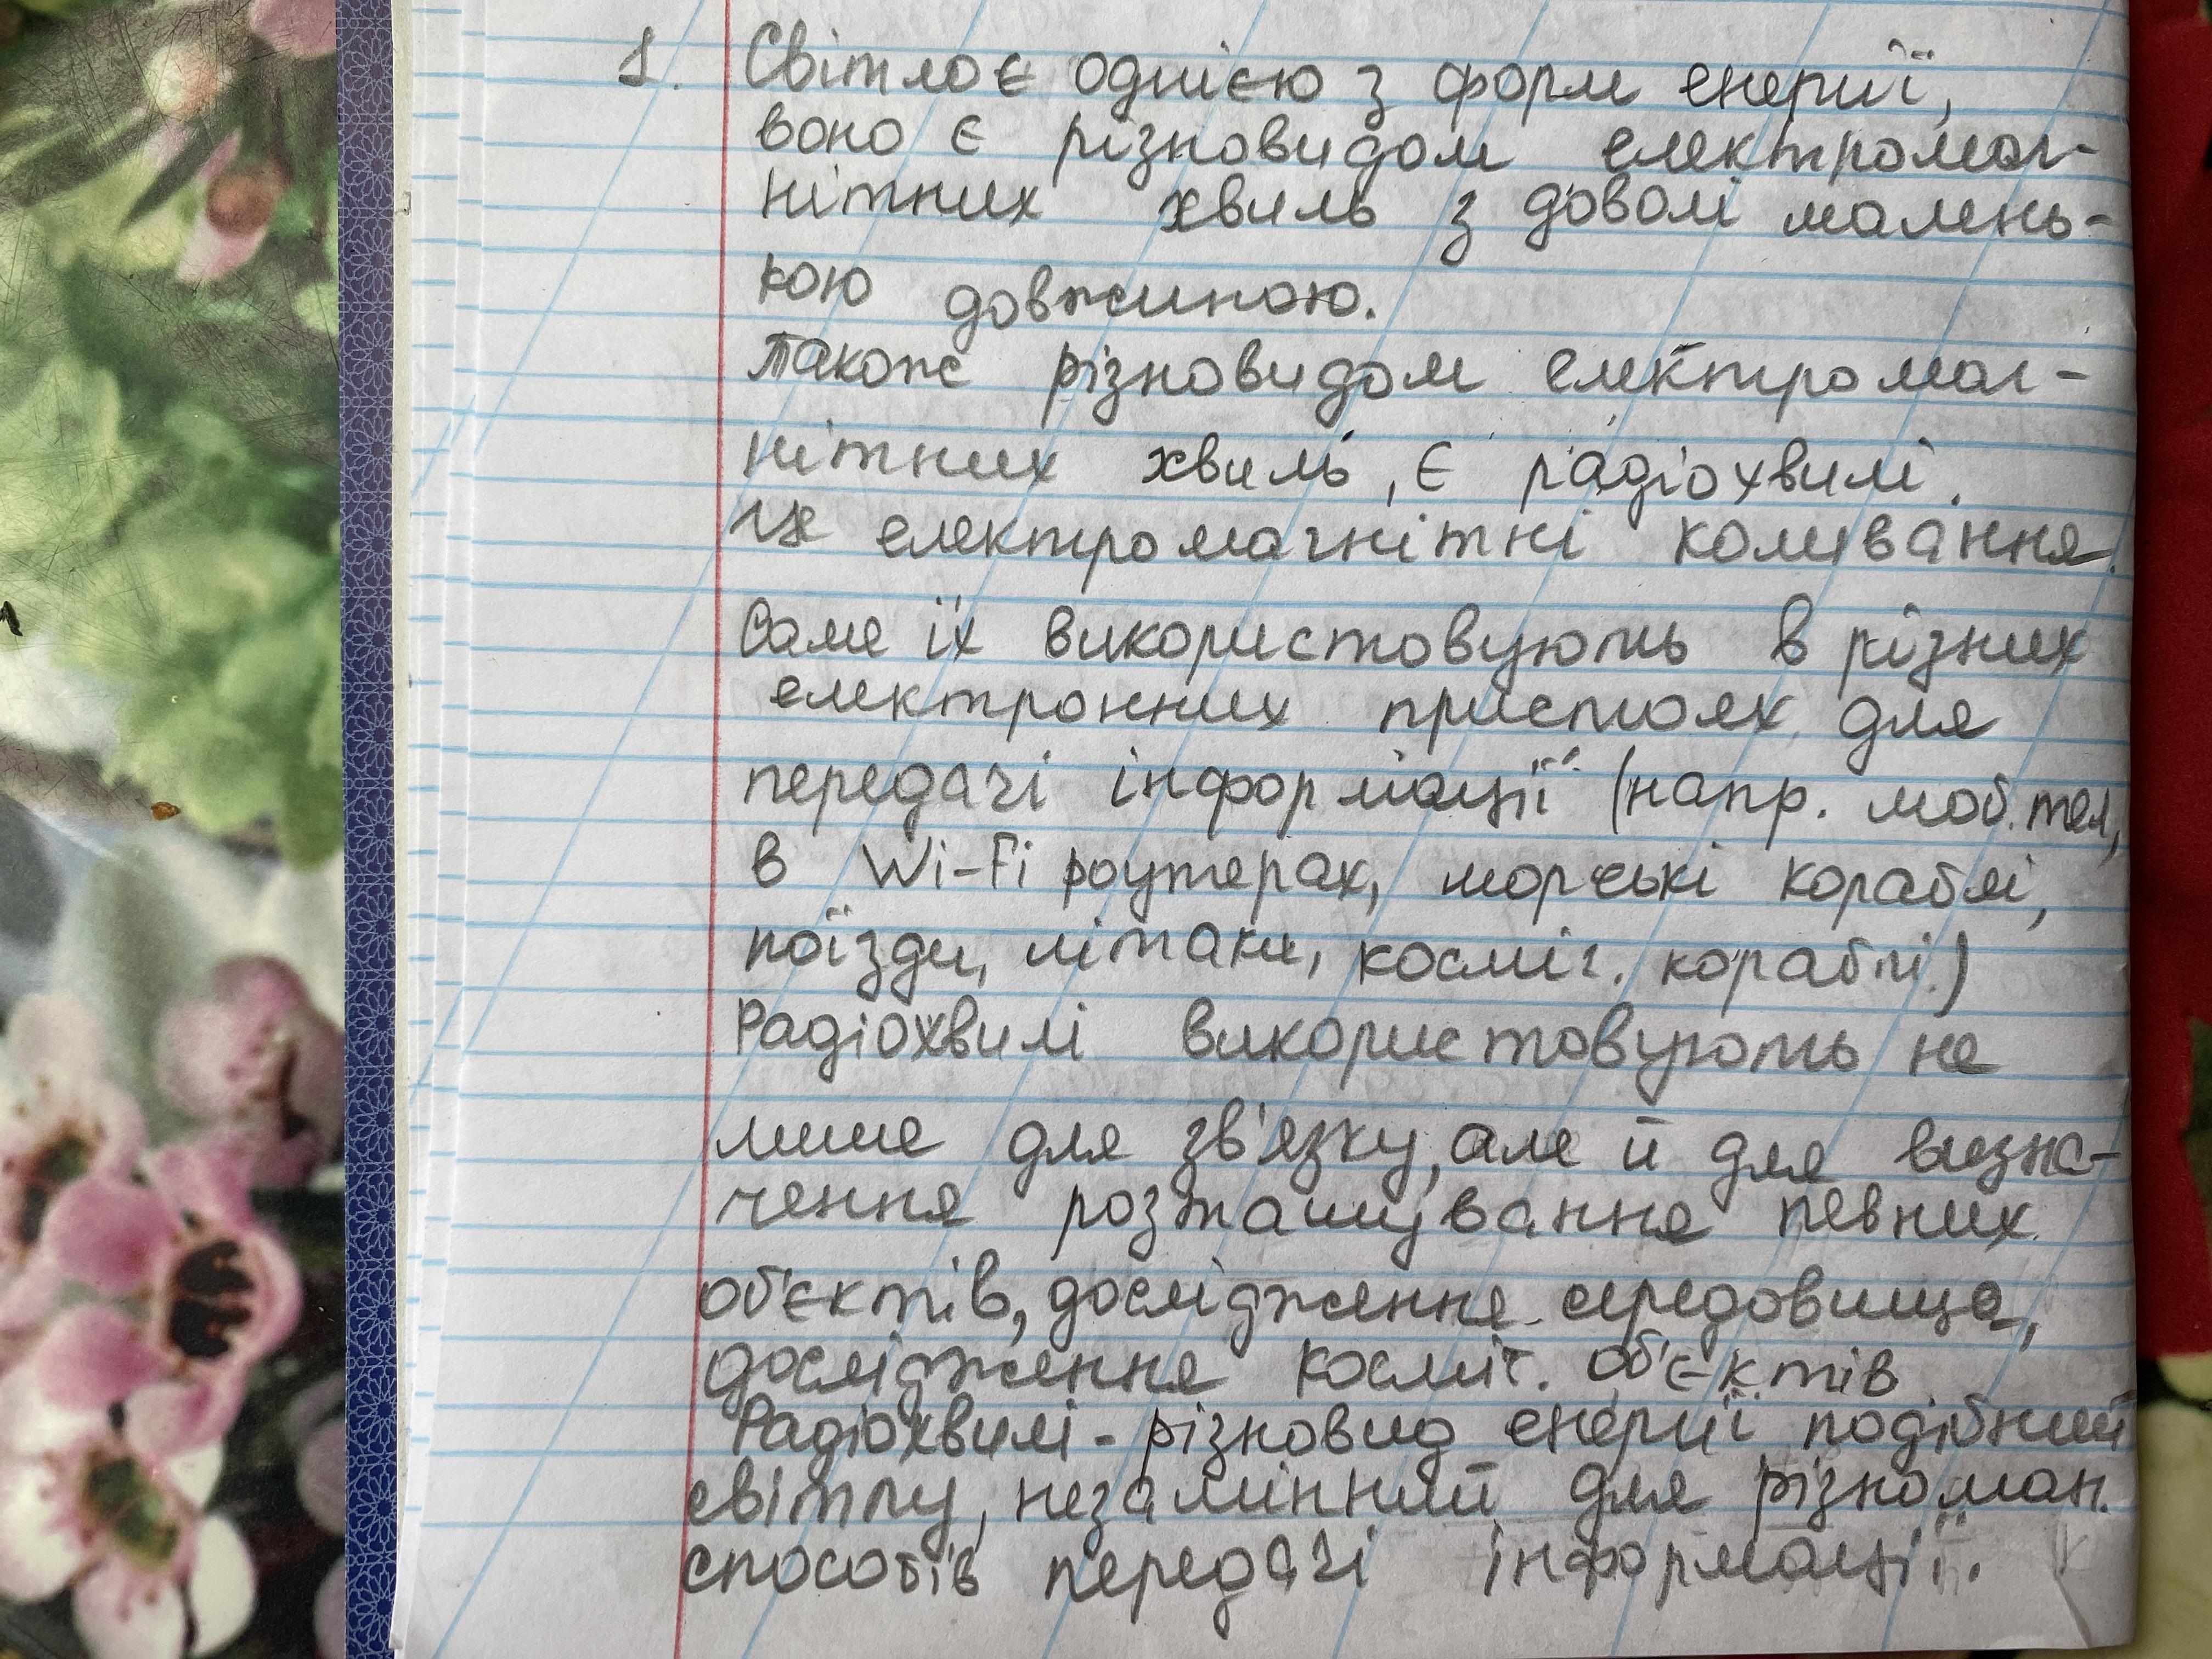 1. Світло є однією з форм енергії,
воно є різновидом електромаг-
нітних хвиль з доволі малень-
кою довжиною.
Також різновидом електромаг-
нітних хвиль, є радіохвилі.
Це електромагнітні коливання.
Саме їх використовують в різних
електронних пристоях для
передачі інформації (напр. моб. тел,
в Wi-Fi роутерах, морські кораблі,
поїзди, літаки, косміч. кораблі.)
Радіохвилі використовують не
лише для зв'язку, але й для визна-
чення розташування певних
об'єктів, дослідження середовища,
дослідження косміч. об'єктів
Радіохвилі - різновид енергії подібний
світлу, незамінний для різноман.
способів передачі інформації.